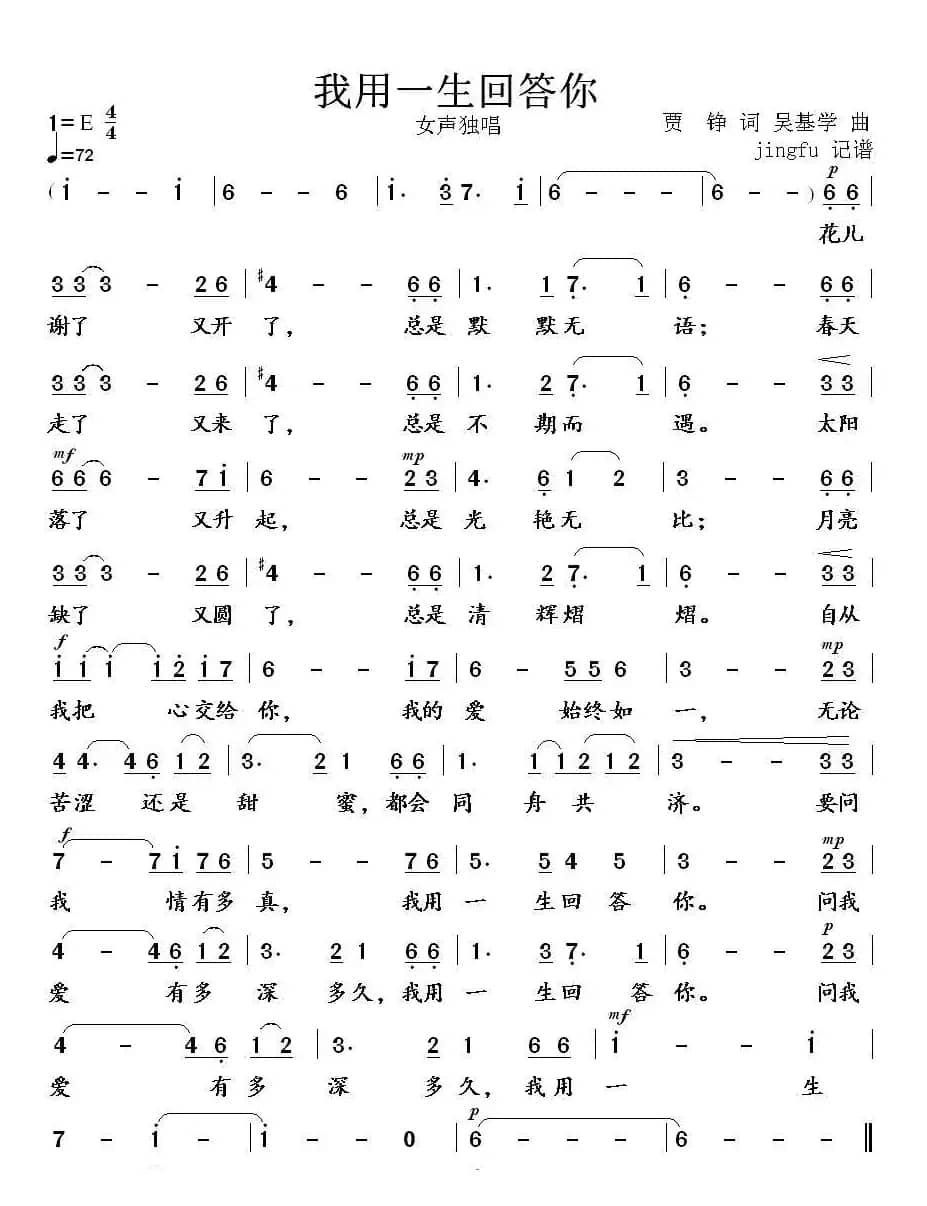 我用一生回答你
1= E 4/4
女声独唱
贾 铮 词 吴基学 曲
♩=72
jingfu 记谱
p
( i - - i | 6 - - 6 | i· 3 7· i | 6 - - - | 6 - - ) 6 6 |
花儿
3 3 3 - 2 6 | #4 - - 6 6 | 1· 1 7· 1 | 6 - - 6 6 |
谢了 又开 了, 总是 默 默无 语; 春天
3 3 3 - 2 6 | #4 - - 6 6 | 1· 2 7· 1 | 6 - - 3 3 |
走了 又来 了, 总是 不 期而 遇。 太阳
mf mp
6 6 6 - 7 i | 6 - - 2 3 | 4· 6 1 2 | 3 - - 6 6 |
落了 又升 起, 总是 光 艳无 比; 月亮
3 3 3 - 2 6 | #4 - - 6 6 | 1· 2 7· 1 | 6 - - 3 3 |
缺了 又圆 了, 总是 清 辉熠 熠。 自从
f mp
i i i i 2 i 7 | 6 - - i 7 | 6 - 5 5 6 | 3 - - 2 3 |
我把 心交给 你, 我的 爱 始终如 一, 无论
4 4· 4 6 1 2 | 3· 2 1 6 6 | 1· 1 1 2 1 2 | 3 - - 3 3 |
苦涩 还是 甜 蜜,都会 同 舟 共 济。 要问
f mp
7 - 7 i 7 6 | 5 - - 7 6 | 5· 5 4 5 | 3 - - 2 3 |
我 情有多 真, 我用 一 生回 答 你。 问我
p
4 - 4 6 1 2 | 3· 2 1 6 6 | 1· 3 7· 1 | 6 - - 2 3 |
爱 有多 深 多久,我用 一 生回 答 你。 问我
mf
4 - 4 6 1 2 | 3· 2 1 6 6 | i - - i |
爱 有多 深 多久,我用 一 生
p
7 - i - | i - - 0 | 6 - - - | 6 - - - ‖